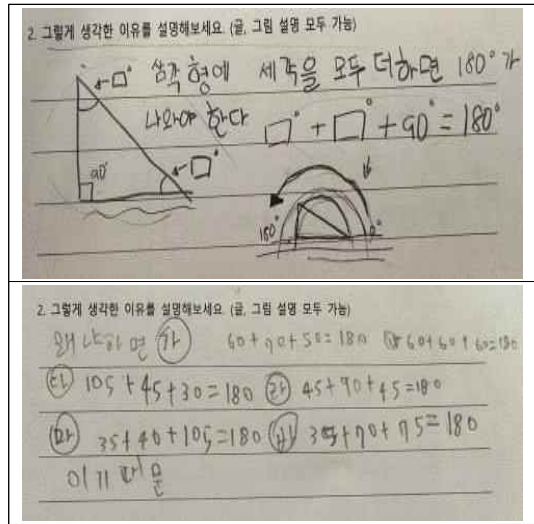 2. 그렇게 생각한 이유를 설명해보세요. (글, 그림 설명 모두 가능)
←□° 삼각형에 세각을 모두 더하면 180°가
나와야 한다 □°+□°+90°=180°
90° ←□°
180° 0°
2. 그렇게 생각한 이유를 설명해보세요. (글, 그림 설명 모두 가능)
왜냐하면 ㉮ 60+70+50=180 ㉯ 60+60+60=180
㉰ 105+45+30=180 ㉱ 45+90+45=180
㉲ 35+40+105=180 ㉳ 35+70+75=180
이기 때문